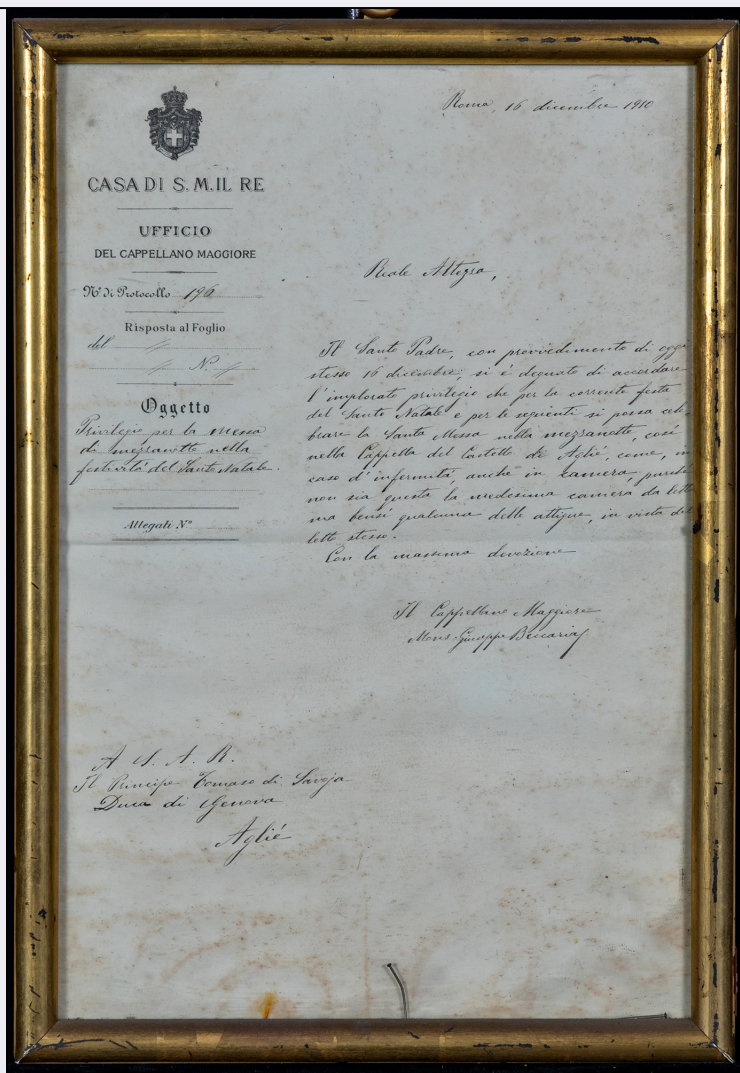 Roma, 16 dicembre 1910
CASA DI S. M. IL RE
UFFICIO
DEL CAPPELLANO MAGGIORE
N° di Protocollo 196
Risposta al Foglio
del "
" N. "
Oggetto
Privilegio per la messa
di mezzanotte nella
festività del Santo Natale.
Allegati N°
Reale Altezza,
Il Santo Padre, con provvedimento di oggi
stesso 16 dicembre, si è degnato di accordare
l'implorato privilegio che per la corrente festa
del Santo Natale e per le seguenti si possa cele
brare la Santa Messa nella mezzanotte, così
nella Cappella del Castello di Agliè, come, in
caso d'infermità, anche in camera, purchè
non sia questa la medesima camera da letto
ma bensì qualcuna delle attigue, in vista del
letto stesso.
Con la massima devozione
Il Cappellano Maggiore
Mons. Giuseppe Beccaria
A S. A. R.
Il Principe Tomaso di Savoja
Duca di Genova
Agliè